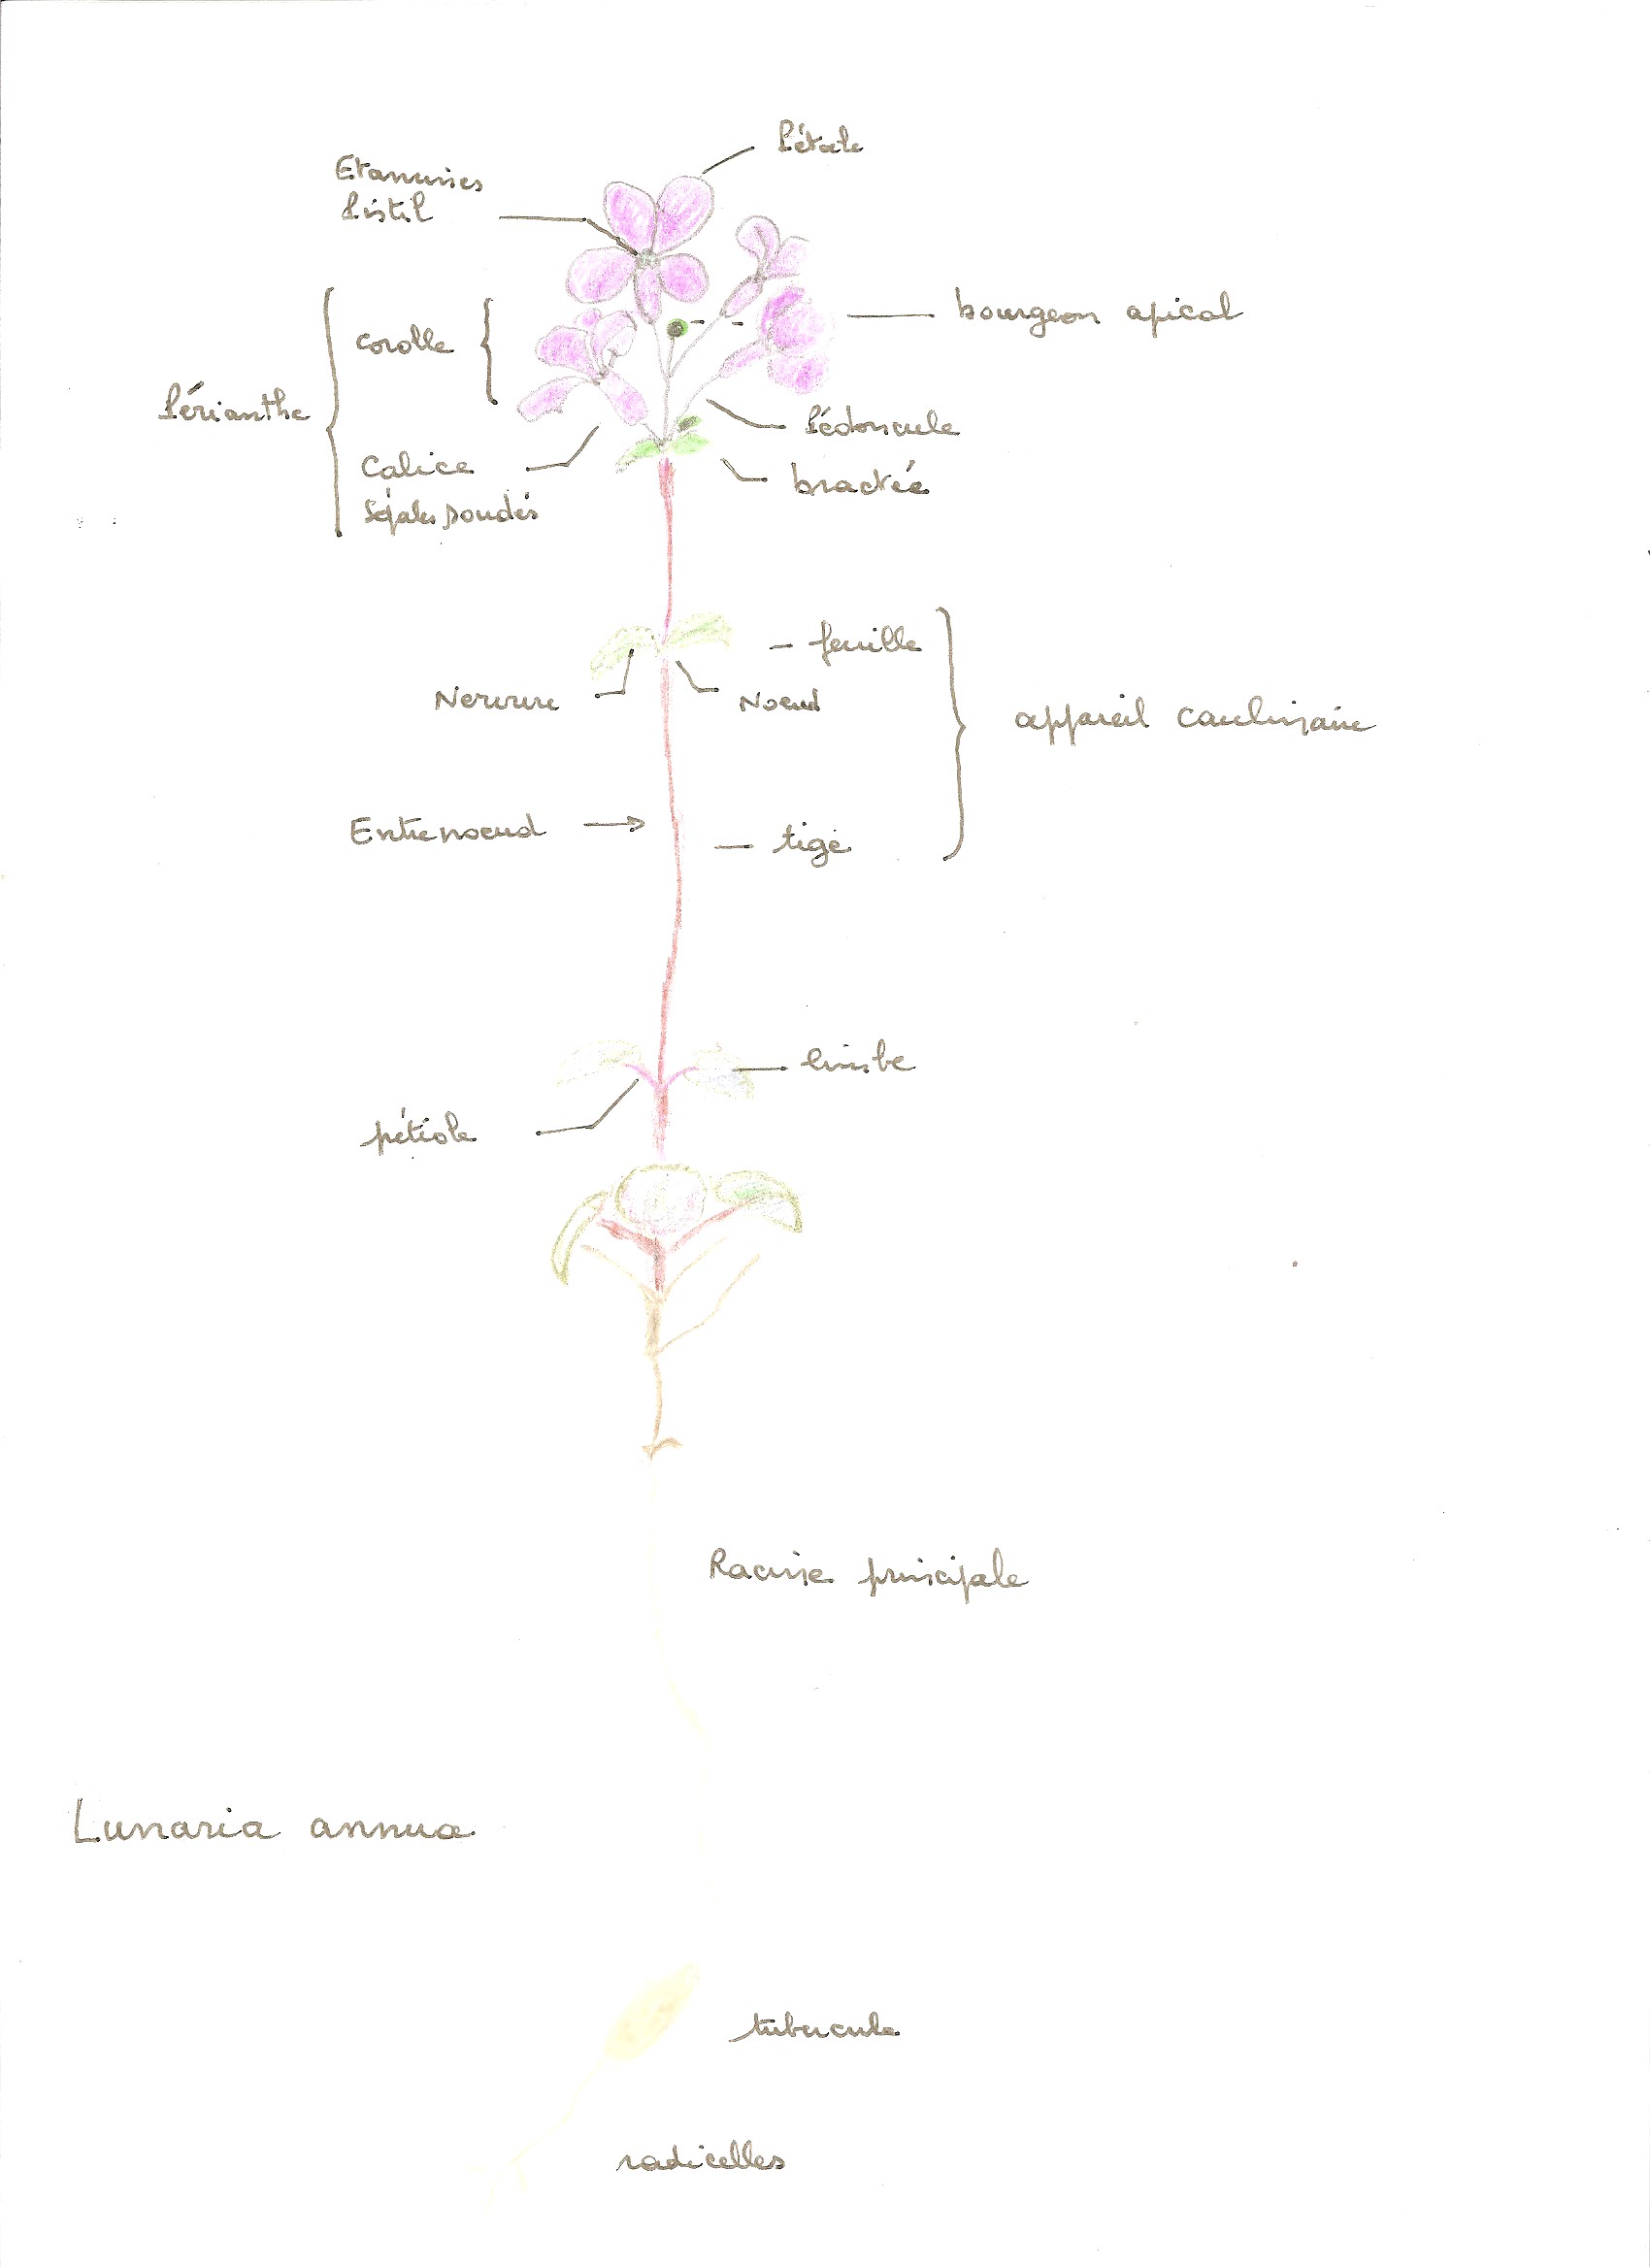 Pétale
Etamines
Pistil
bourgeon apical
Corolle
Périanthe
Pédoncule
Calice
bractée
Sépales soudés
feuille
Nervure
Noeud
appareil caulinaire
Entrenoeud
tige
limbe
pétiole
Racine principale
Lunaria annua
tubercule
radicelles